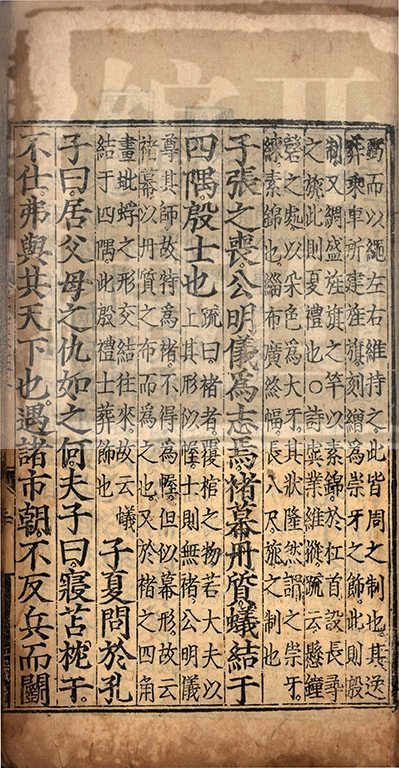 旁而以繩左右維持之。此皆周之制也。其送
葬乘車所建旌旗。刻繒為崇牙之飾。此則殷
制。又綢盛旌旗之竿。以素錦於杠首設長尋
之旐。此則夏禮也。○詩虡業維樅。疏云。懸鐘
磬之處。以采色為大牙。其狀隆然。謂之崇牙。
練。素錦也。緇布廣終幅。長八尺。旐之制也
子張之喪。公明儀為志焉。褚幕丹質。蟻結于
四隅。殷士也
疏曰。褚者。覆棺之物。若大夫以
上。其形似幄。士則無褚。公明儀
尊其師。故特為褚。不得為幄。但似幕形。故云
褚幕。以丹質之布而為之也。又於褚之四角
畫蚍蜉之形。交結往來。故云蟻
結于四隅。此殷禮士葬飾也
子夏問於孔
子曰。居父母之仇如之何。夫子曰。寢苫枕干。
不仕。弗與共天下也。遇諸市朝。不反兵而鬭